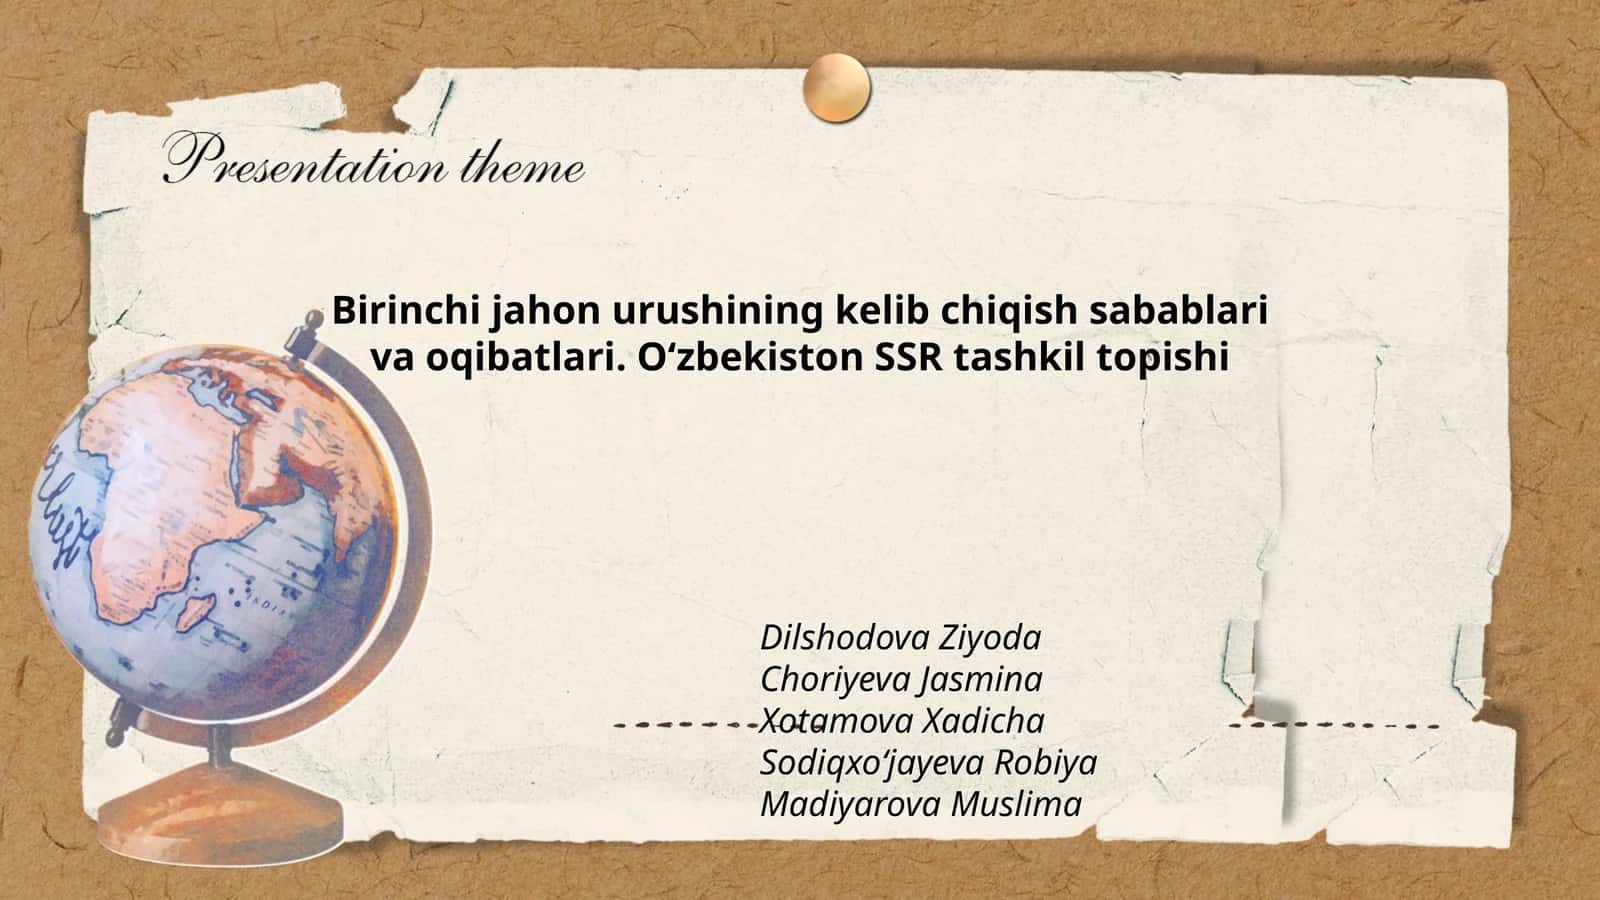 Presentation theme
Birinchi jahon urushining kelib chiqish sabablari
va oqibatlari. Oʻzbekiston SSR tashkil topishi
Dilshodova Ziyoda
Choriyeva Jasmina
Xotamova Xadicha
Sodiqxoʻjayeva Robiya
Madiyarova Muslima